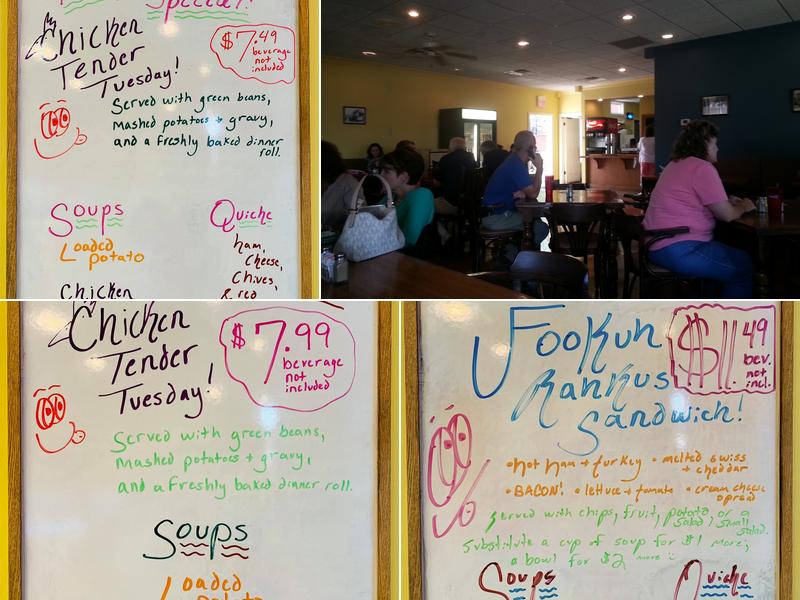 Special!
Chicken
Tender
Tuesday!
$7.49
beverage
not
included
Served with green beans,
mashed potatoes + gravy,
and a freshly baked dinner
roll.
Soups
Loaded
potato
Chicken
Quiche
ham,
cheese,
chives,
& red
Chicken
Tender
Tuesday!
$7.99
beverage
not
included
Served with green beans,
mashed potatoes + gravy,
and a freshly baked dinner roll.
Soups
Loaded
potato
Fookun
Rankus
Sandwich!
$11.49
bev.
not
incl.
•hot ham + turkey • melted swiss
+ cheddar
•BACON! • lettuce + tomato • cream cheese
spread
Served with chips, fruit, potato
salad, or a
small
salad.
Substitute a cup of soup for $1 more;
a bowl for $2 more :)
Soups
Quiche